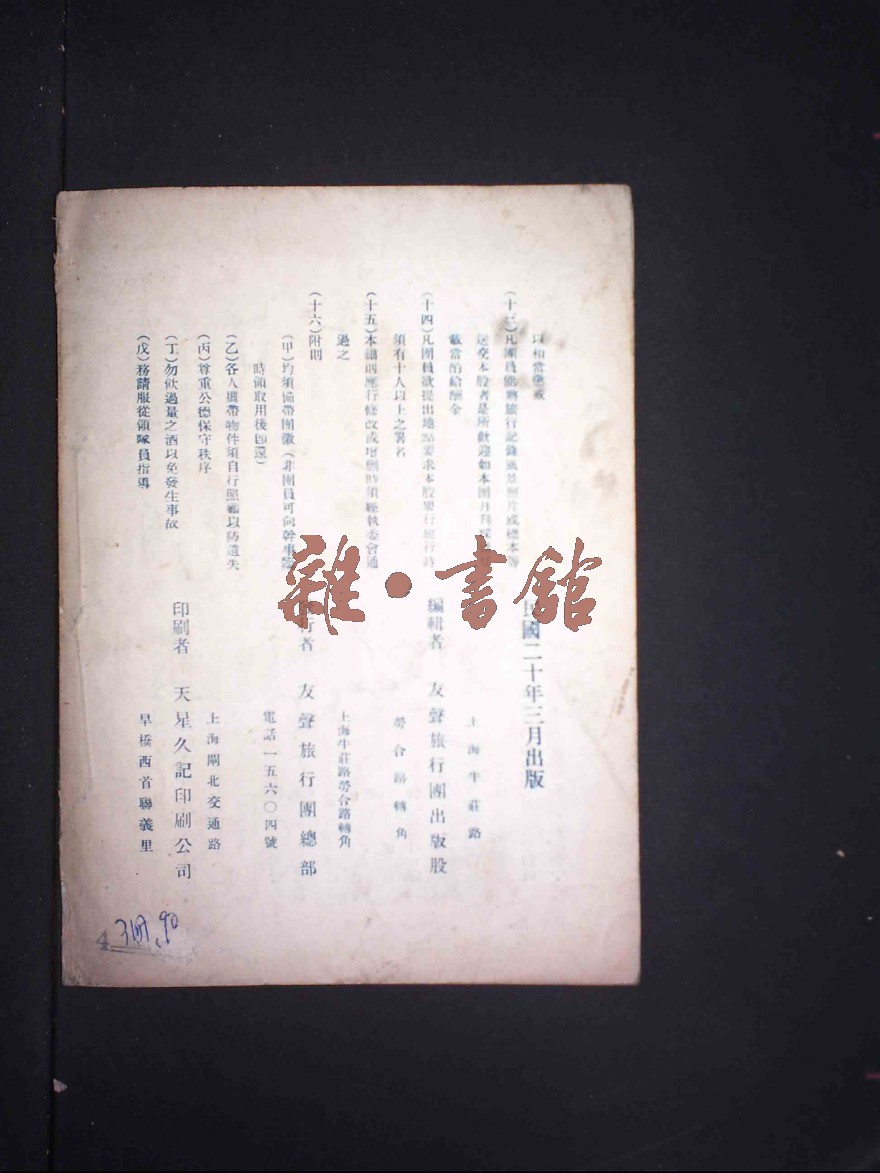 以相當懲戒
(十三)凡團員能將旅行記錄風景照片或標本等
送交本股者是所歡迎如本團月刊
載當酌給酬金
(十四)凡團員欲提出地點要求本股舉行旅行時
須有十人以上之署名
(十五)本細則應行修改或增刪時須經執委會通
過之
(十六)附則
(甲)均須備帶團徽(非團員可向幹事
時領取用後即還)
(乙)各人攜帶物件須自行照顧以防遺失
(丙)尊重公德保守秩序
(丁)勿飲過量之酒以免發生事故
(戊)務請服從領隊員指導
民國二十年三月出版
上海牛莊路
編輯者 友聲旅行團出版股
勞合路轉角
上海牛莊路勞合路轉角
行者 友聲旅行團總部
電話一五六〇四號
上海閘北交通路
印刷者 天星久記印刷公司
旱橋西首聯義里
雜·書館
4